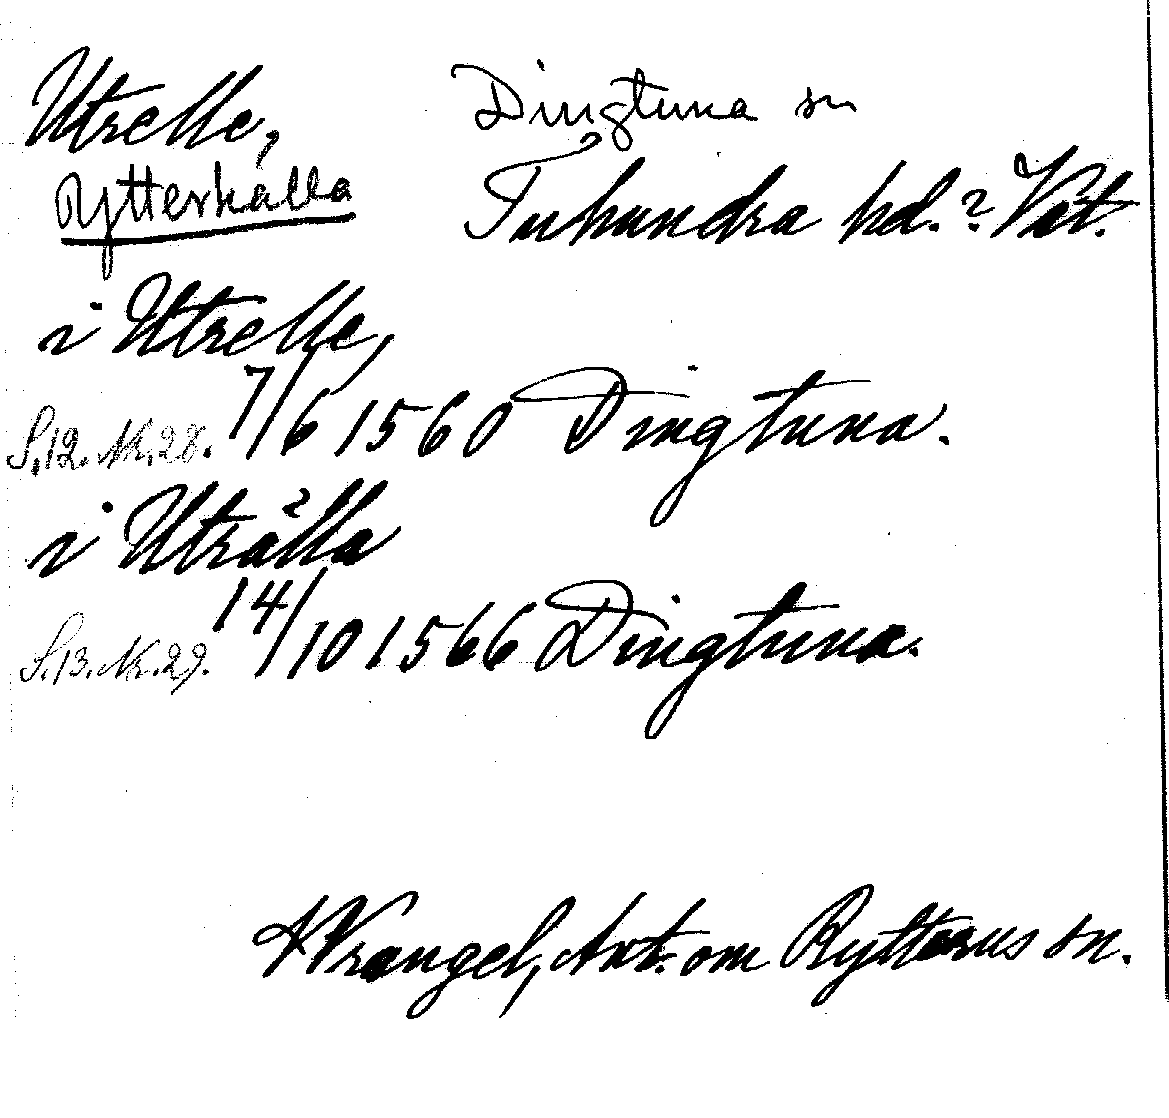 Utrelle, Dingtuna sn
Rytterkälla Tuhundra hd.? Vst.
i Utrelle,
S.12. Nr.28. 7/6 1560 Dingtuna.
i Uträlla
S.13. Nr.29. 14/10 1566 Dingtuna.
Wrangel, Ant. om Rytterns sn.